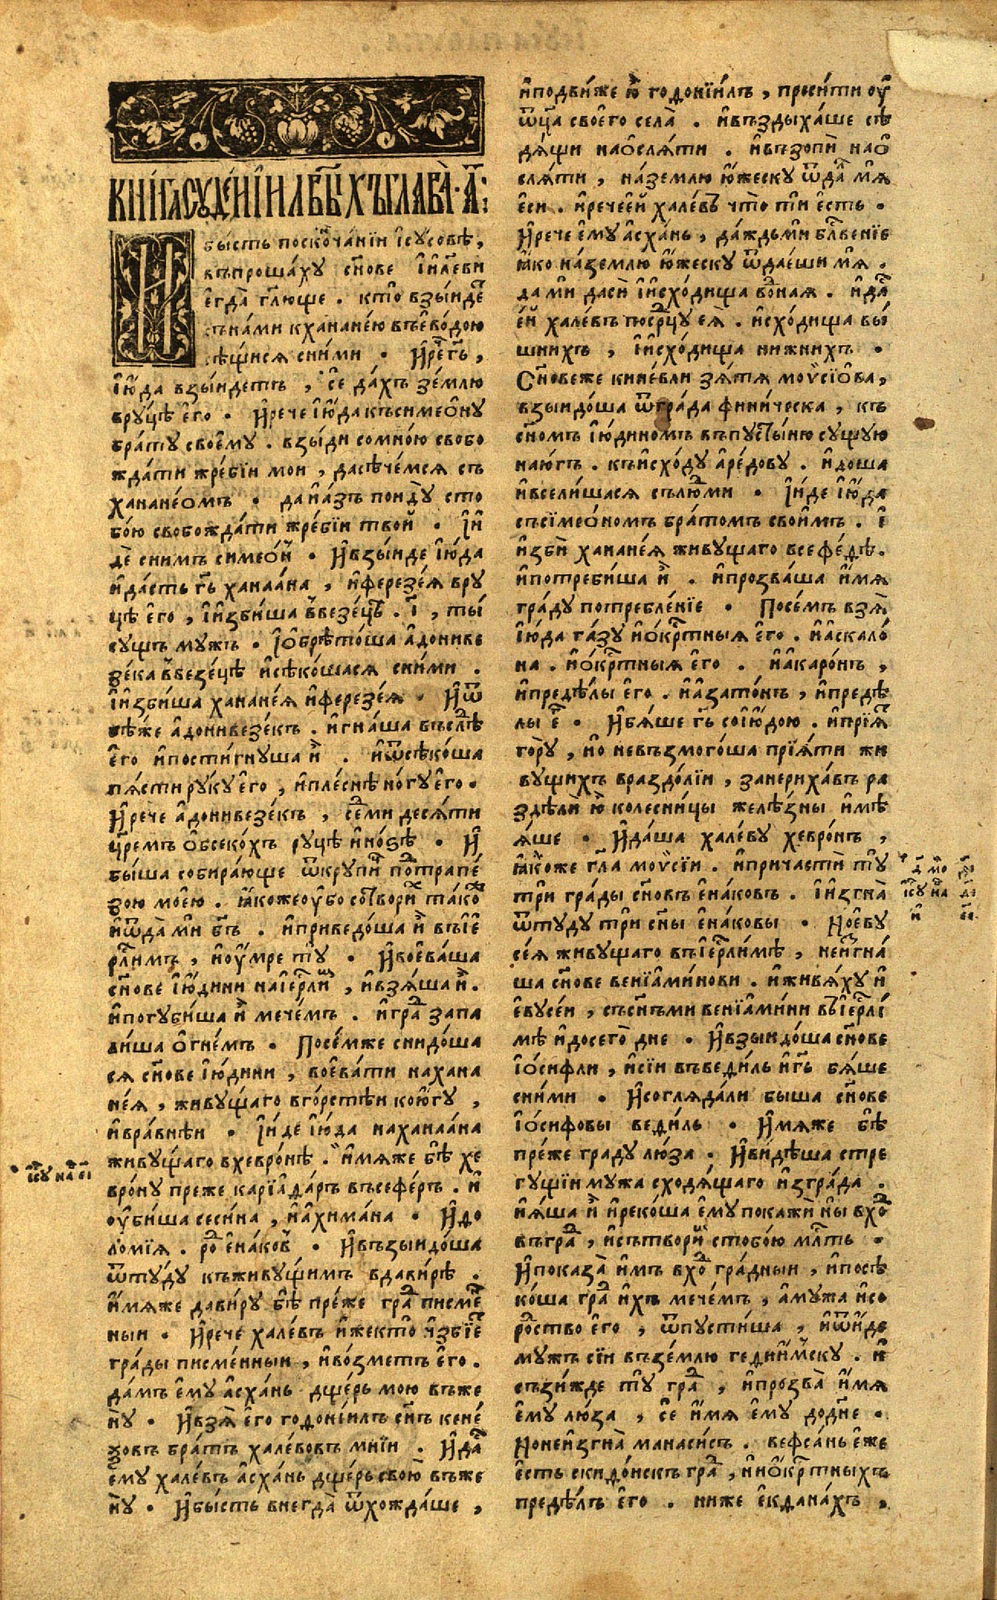 КНИГА СУДЕЙ ІИЛВЫХЪ ГЛАВА · А҃ :
И бы́сть поско́нчанїи і҆су́совѣ ,
въпроша́ху сн҃ове і҆и҃леви
е҆гда̀ гл҃юще . кто̀ взы́иде
съна́ми к ханане́ю въево́дою
бѣ́щися сни́ми · И҆ре́че гь҃ ,
і҆ю́да взы́идетъ , сѐ да́хъ зе́млю
вру́цѣ е҆го̀ · И҆рече і҆ю́да къ симео́ну
бра́ту свое́му . взы́ди сомно́ю свобо
жда́ти жре́бїи мои , дасѣче́мся съ
ханане́омъ · да и҆а́зъ поиду̀ сто
бо́ю свобожда́ти жре́бїи твои̂ · І҆и
дѐ сни́мъ симео́н · И҆взы́иде і҆ю́да
и҆да́сть гь҃ ханаа́на , и҆ферезе́я вру
цѣ̀ е҆го̀ , і҆и҆зби́ша в ве́зецѣ . І҃ , ты́
сущъ му́жъ · І҆о҆брѣто́ша а҆дониве
зе́ка в ве́зецѣ и҆сѣко́шася сни́ми .
і҆и҆зби́ша ханане́я и҆ферезе́я · И҆ѿ
бѣ́же а҆донивезе́къ . и҆гна́ша въслѣ́дъ
е҆го̀ и҆пости́гнуша и҆̀ . и҆ѿсѣко́ша
пя́сти руку̀ е҆го̀ , и҆пле́снѣ но́гу е҆го̀ ·
И҆рече а҆донивезе́къ , се́ми деся́ти
цр҃емъ о҆бсеко́хъ ру́цѣ и҆но́зѣ · И҆
бы́ша собира́юще ѿкрупи́ц потрапе́
зою мое́ю . ꙗ҆́коже оу҆́бо сотвори́х та́ко
и҆ѿда́ ми бг҃ъ . и҆приведо́ша и҆̀ въ і҆е
рл҃имъ , и҆оу҆́мре ту̀ · И҆воева́ша
сн҃ове і҆ю́дини на і҆ерл҃и́м , и҆взя́ша и҆̀ .
и҆погуби́ша и҆̀ мече́мъ . и҆гра́д запа
ли́ша о҆гне́мъ · Посе́мже снидо́ша
ся сн҃ове і҆ю́дини , воева́ти на хана
не́я , живу́щаго вго́рстѣи ко ю҆́гу ,
и҆вра́внѣи · І҆и́де і҆ю́да на ханаа́на
живу́щаго в хевро́нѣ . и҆́мяже бѣ̀ хе
вро́ну пре́же карїадʼа́рв въсефе́ръ . и҆
оу҆би́ша сеси́на , и҆ахима́на · И҆до
ло́мїя . ро́д е҆на́ков · И҆възыидо́ша
ѿту́ду къ живу́щимъ в дави́рѣ .
и҆́мяже дави́ру бѣ̀ пре́же гра́д писме́н
ныи · И҆рече хале́въ и҆́же кто̀ и҆збїе́т
гра́ды писме́нныи , и҆во́зметъ е҆го̀ .
да́мъ е҆му а҆сха́нь дще́рь мою въ же
ну̀ · И҆взя́ е҆го̀ годонїи́лъ сн҃ъ кене́
зовъ бра́тъ хале́вовъ мнїи . И҆да́ст
е҆му хале́въ а҆сха́нь дще́рь свою̀ въ же
ну̀ · И҆бы́сть внегда̀ ѿхожда́ше ,
и҆подви́же ю҆̀ годонїи́лъ , проси́ти оу҆
ѿц҃а своего̀ села̀ . и҆въздыха́ше сѣ
дя́щи на о҆сля́ти . и҆възопѝ на о҆
сля́ти , на зе́млю ю҆́жеску ѿда́л мя̀
е҆си . и҆рече е҆й хале́въ что̀ ти е҆́сть ·
И҆рече е҆му а҆сха́нь , да́ждь ми бл҃ве́нїе
ꙗ҆́ко на зе́млю ю҆́жеску ѿдае́ши мя̀ .
да ми даси̂ і҆и҆схо́дища во́дная . и҆да́ст
е҆́й хале́въ по ср҃цу е҆я̀ . и҆схо́дища вы́
шнихъ , і҆и҆схо́дища нижнихъ ·
Сн҃овеже кине́вли зя́тя моѵ҆сїо́ва ,
взыидо́ша ѿ гра́да фини́ческа , къ
сн҃омъ і҆ю́диномъ въ пусты́ню су́щую
на ю҆́гъ . къ и҆схо́ду а҆ре́дову . и҆доша
и҆всели́шася сълю́дми · І҆и́де і҆ю́да
съ сїмео́номъ бра́томъ свои́мъ . і҆
и҆зби̂ ханане́я живу́щаго в сефе́дѣ .
и҆потреби́ша и҆̀ . и҆прозва́ша и҆́мя
гра́ду потребле́нїе · Посе́мъ взя̀
і҆ю́да га́зу и҆о҆кр́тныя е҆го̀ . и҆аскало́
на . и҆о҆кр́тныя е҆го̀ . и҆акаро́нъ ,
и҆предѣ́лы е҆го̀ . и҆азато́нъ , и҆предѣ́
лы е҆го̀ · И҆бя́ше гь҃ со і҆ю́дою . и҆прїя́т
го́ру , но невъзмого́ша прїя́ти жи
вущихъ в раздо́лїи , зане риха́въ ра
здѣли̂ ю҆̀ колесни́цы желѣ́зны и҆мѣ
я́ше · И҆да́ша хале́ву хевро́нъ ,
ꙗ҆́коже гл҃а моѵ҆сїи . и҆причасти̂ ту̀
три гра́ды сн҃овъ е҆на́ковъ . І҆и҆згна̀
ѿту́ду три сн҃ы е҆на́ковы · И҆о е҆ву
се́я живу́щаго въ і҆ерл҃и́мѣ , неи҆згна́
ша сн҃ове венїами́нови . и҆живя́ху и҆
е҆вусе́и , съ сн҃ьми венїами́ни въ і҆ерл҃и́
мѣ и҆досего̀ дне · И҆взыидо́ша сн҃ове
і҆о́сифли , и҆сїи въ веди́ль и҆гь҃ бя́ше
сни́ми · И҆согляда́ли быша сн҃ове
і҆о́сифовы веди́ль · И҆́мяже бѣ̀
пре́же гра́ду лю́за · И҆ви́дѣша стре
гу́щїи му́жа сходя́щаго и҆зъ гра́да .
и҆я́ша и҆̀ и҆реко́ша е҆му покажи̂ ны вхо́д
въ гра́д , и҆сътвори́м стобо́ю мл҃ть ·
И҆показа̀ и҆мъ вхо́д гра́дныи , и҆посѣ
ко́ша гра́д и҆хъ мече́мъ , а҆му́жа и҆со
ро́дство е҆го̀ , ѿпусти́ша , и҆ѿи́де
му́жъ сїи въ зе́млю гедии́мску . и҆
съзи́жде ту̀ гра́д , и҆прозва̀ и҆́мя
е҆му лю́за , сѐ и҆́мя е҆му до дне ·
И҆о неи҆згна̀ манаси́съ . вефса́нь е҆́же
е҆сть скидо́нскъ гра́д , и҆ни о҆кр́тныхъ
предѣ́лъ е҆го̀ . ниже е҆кдана́хъ ,
і҆су на҃ еі